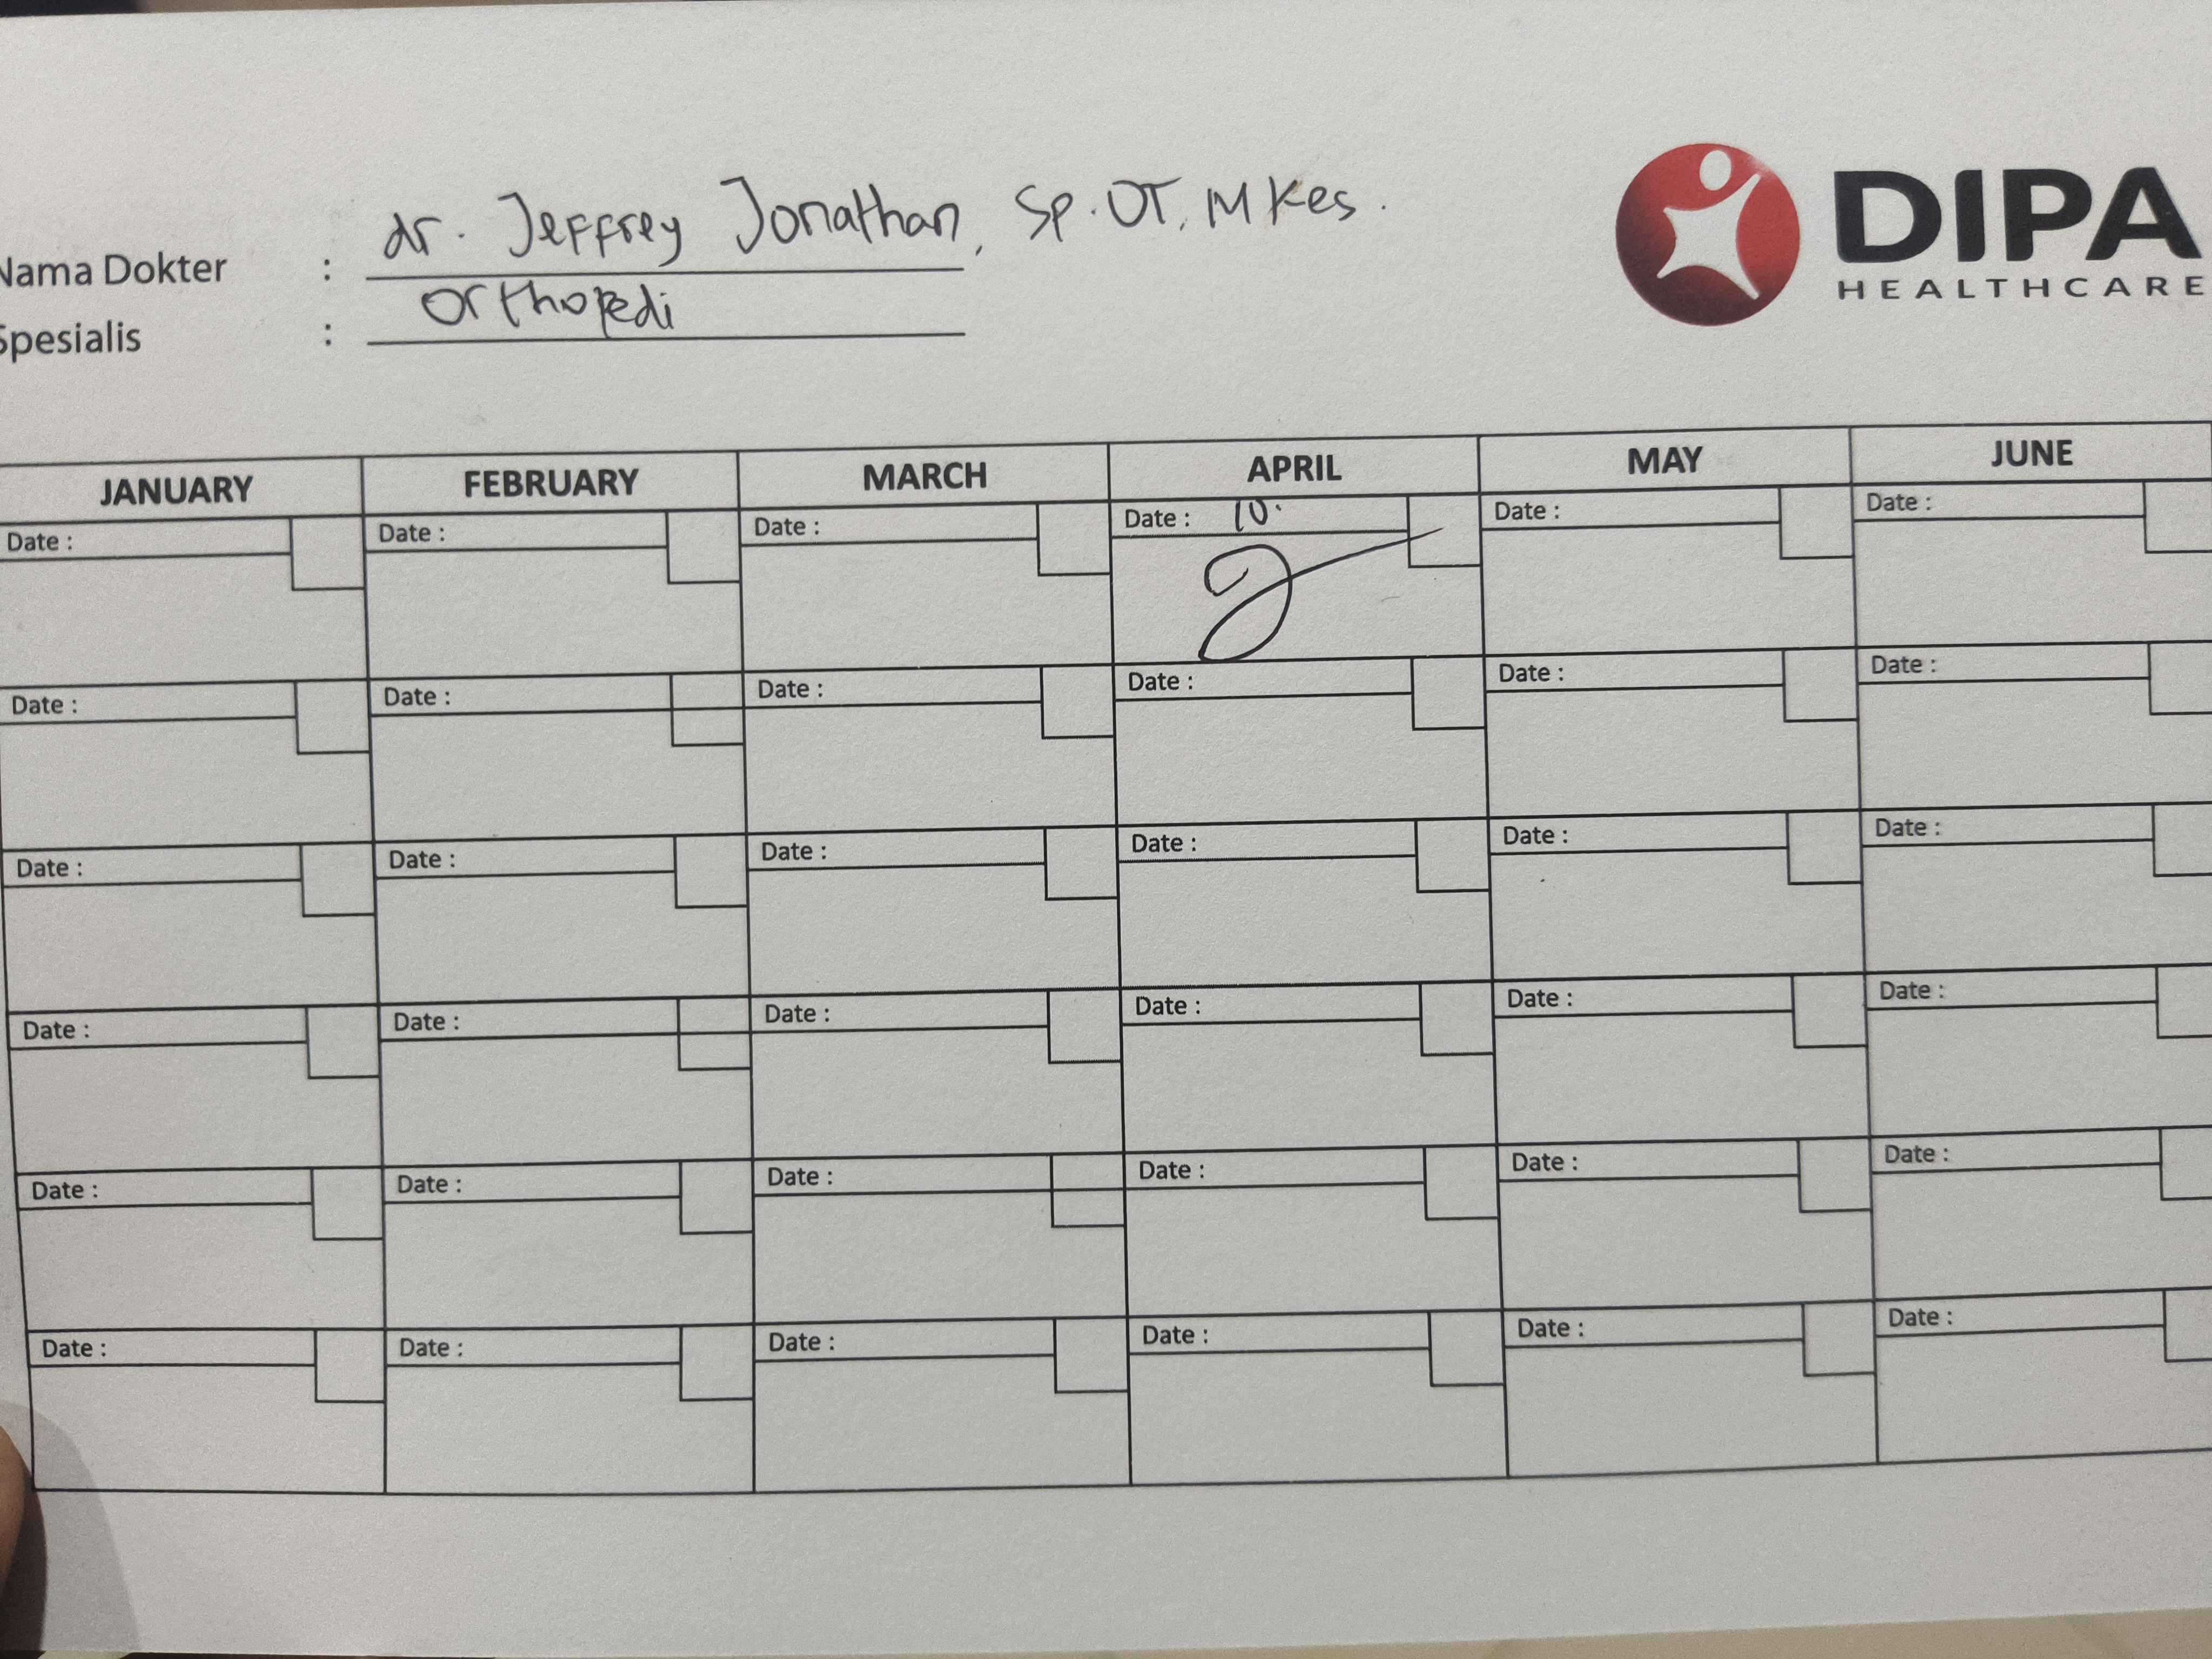 DIPA
HEALTHCARE
Nama Dokter : dr. Jeffrey Jonathan, Sp.OT, M Kes.
Spesialis : Orthopedi
JANUARY FEBRUARY MARCH APRIL MAY JUNE
Date : Date : Date : Date : 10. Date : Date :
Date : Date : Date : Date : Date : Date :
Date : Date : Date : Date : Date : Date :
Date : Date : Date : Date : Date : Date :
Date : Date : Date : Date : Date : Date :
Date : Date : Date : Date : Date : Date :